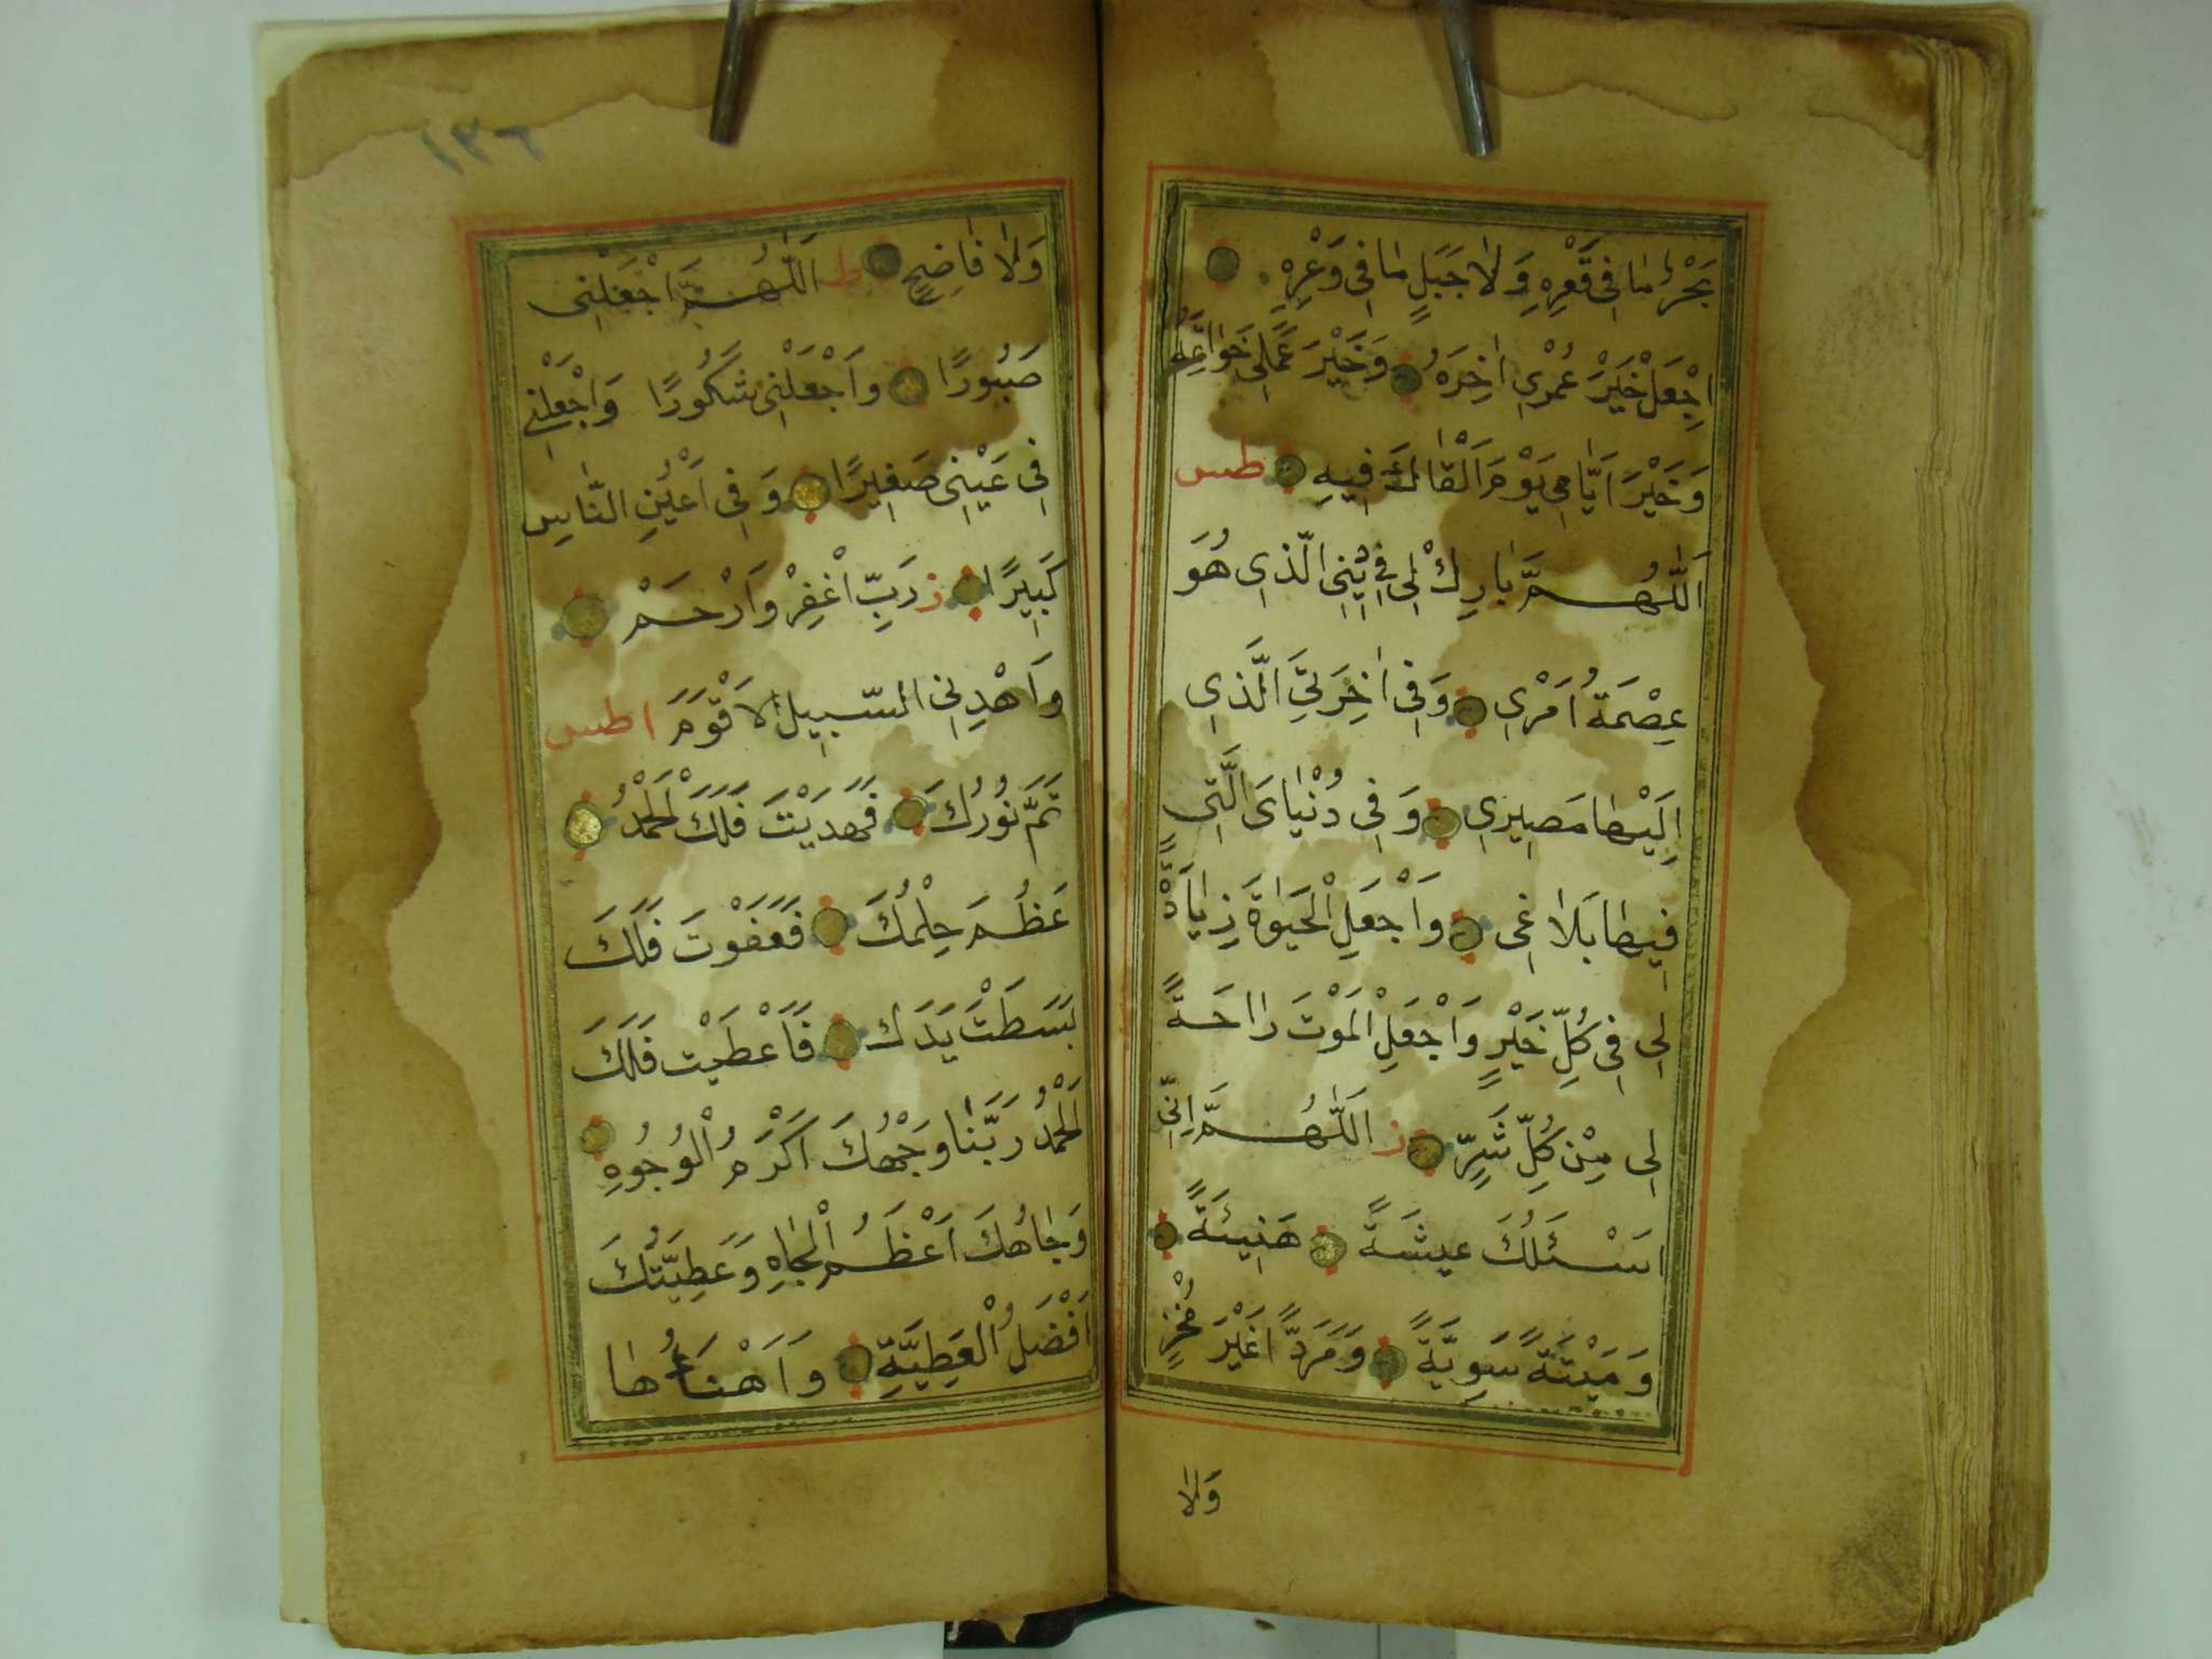 بَحْرٌ مَا فِى قَعْرِهِ وَلَا جَبَلٍ مَا فِى وَعْرِهِ
اِجْعَلْ خَيْرَ عُمْرِى اٰخِرَهُ وَخَيْرَ عَمَلِى خَوَاتِمَهُ
وَخَيْرَ اَيَّامِى يَوْمَ اَلْقَاكَ فِيهِ طس
اَللّٰهُمَّ بَارِكْ لِى فِى دِينِى الَّذِى هُوَ
عِصْمَةُ اَمْرِى وَفِى اٰخِرَتِىَ الَّذِى
اِلَيْهَا مَصِيرِى وَفِى دُنْيَاىَ الَّتِى
فِيهَا بَلَاغِى وَاَجْعَلِ الْحَيٰوةَ زِيَادَةً
لِى فِى كُلِّ خَيْرٍ وَاَجْعَلِ الْمَوْتَ رَاحَةً
لِى مِنْ كُلِّ شَرٍّ ز اَللّٰهُمَّ اِنِّى
اَسْئَلُكَ عِيشَةً هَنِيئَةً
وَمَيْتَةً سَوِيَّةً وَمَرَدًّا غَيْرَ مُخْزٍ
وَلَا
١٣٦
وَلَا فَاضِحٍ ط اَللّٰهُمَّ اجْعَلْنِى
صَبُورًا وَاَجْعَلْنِى شَكُورًا وَاجْعَلْنِى
فِى عَيْنِى صَغِيرًا وَفِى اَعْيُنِ النَّاسِ
كَبِيرًا ز رَبِّ اغْفِرْ وَارْحَمْ
وَاَهْدِنِى السَّبِيلَ الْاَقْوَمَ ا طس
تَمَّ نُورُكَ فَهَدَيْتَ فَلَكَ الْحَمْدُ
عَظُمَ حِلْمُكَ فَعَفَوْتَ فَلَكَ
بَسَطْتَ يَدَكَ فَاَعْطَيْتَ فَلَكَ
الْحَمْدُ رَبَّنَا وَجْهُكَ اَكْرَمُ الْوُجُوهِ
وَجَاهُكَ اَعْظَمُ الْجَاهِ وَعَطِيَّتُكَ
اَفْضَلُ الْعَطِيَّةِ وَاَهْنَاءُهَا